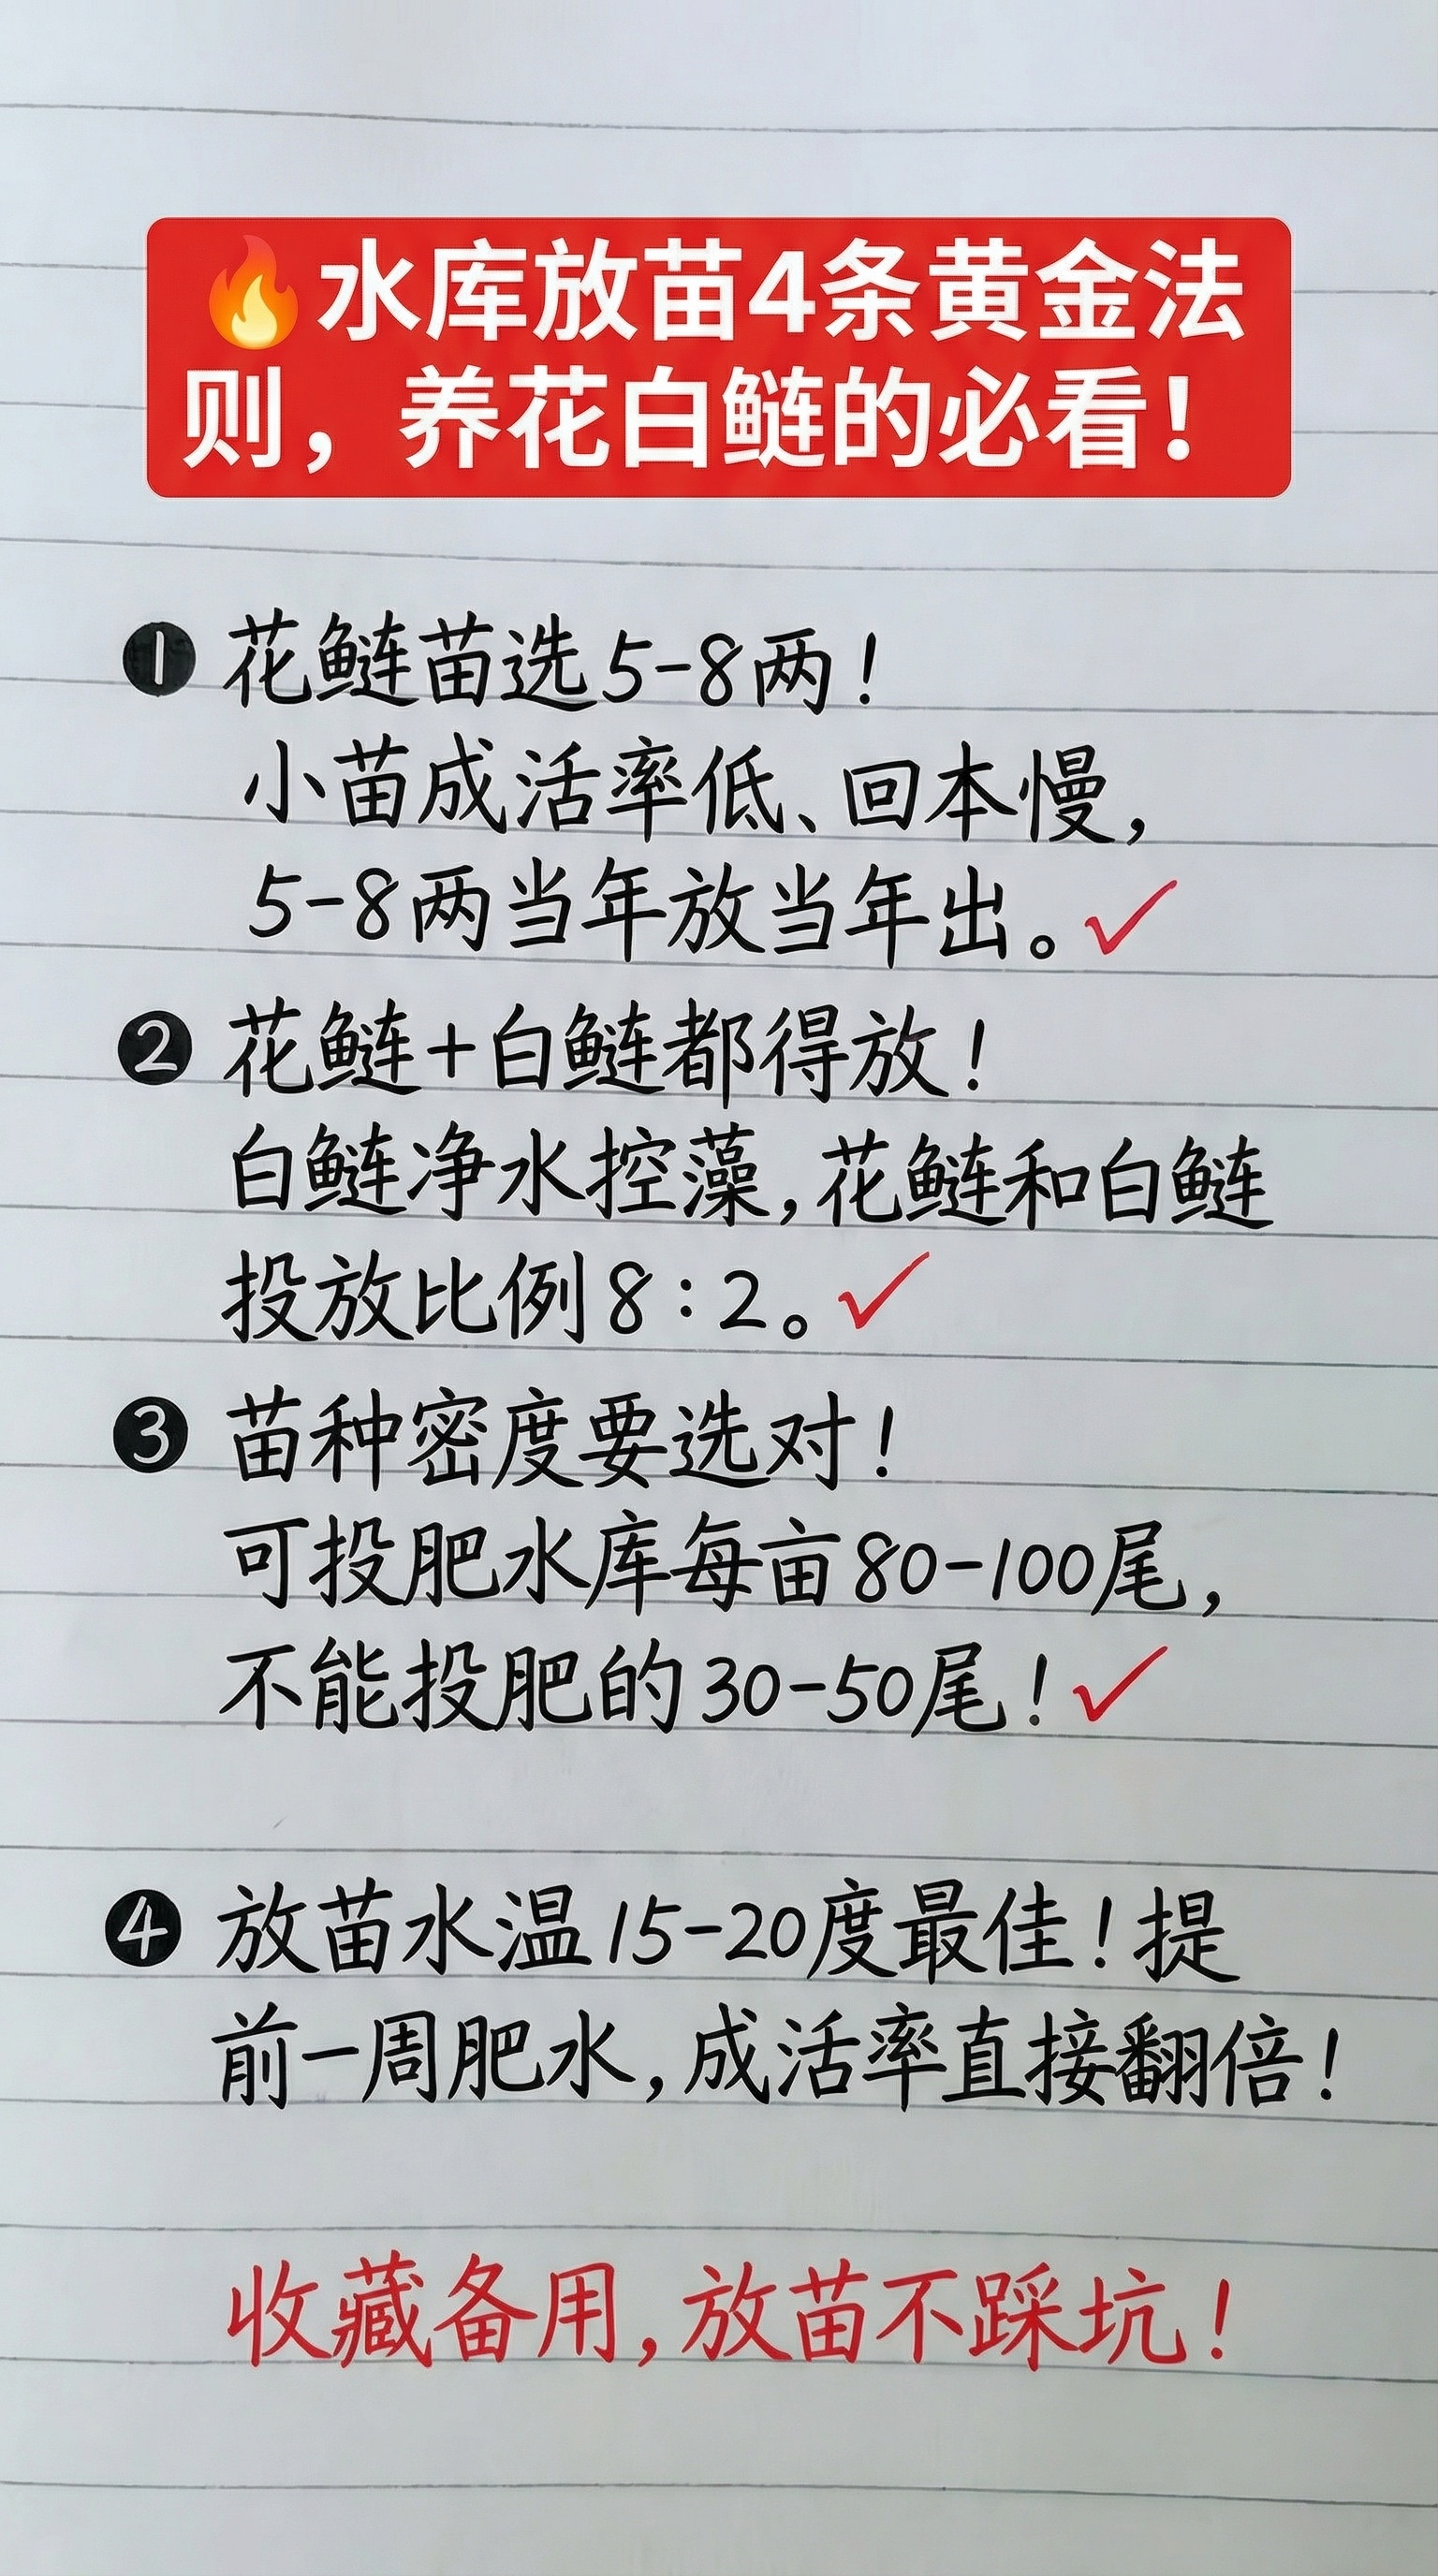 🔥水库放苗4条黄金法
则，养花白鲢的必看！
❶花鲢苗选5-8两！
小苗成活率低、回本慢，
5-8两当年放当年出。✓
❷花鲢+白鲢都得放！
白鲢净水控藻，花鲢和白鲢
投放比例8：2。✓
❸苗种密度要选对！
可投肥水库每亩80-100尾，
不能投肥的30-50尾！✓
❹放苗水温15-20度最佳！提
前一周肥水，成活率直接翻倍！
收藏备用，放苗不踩坑！